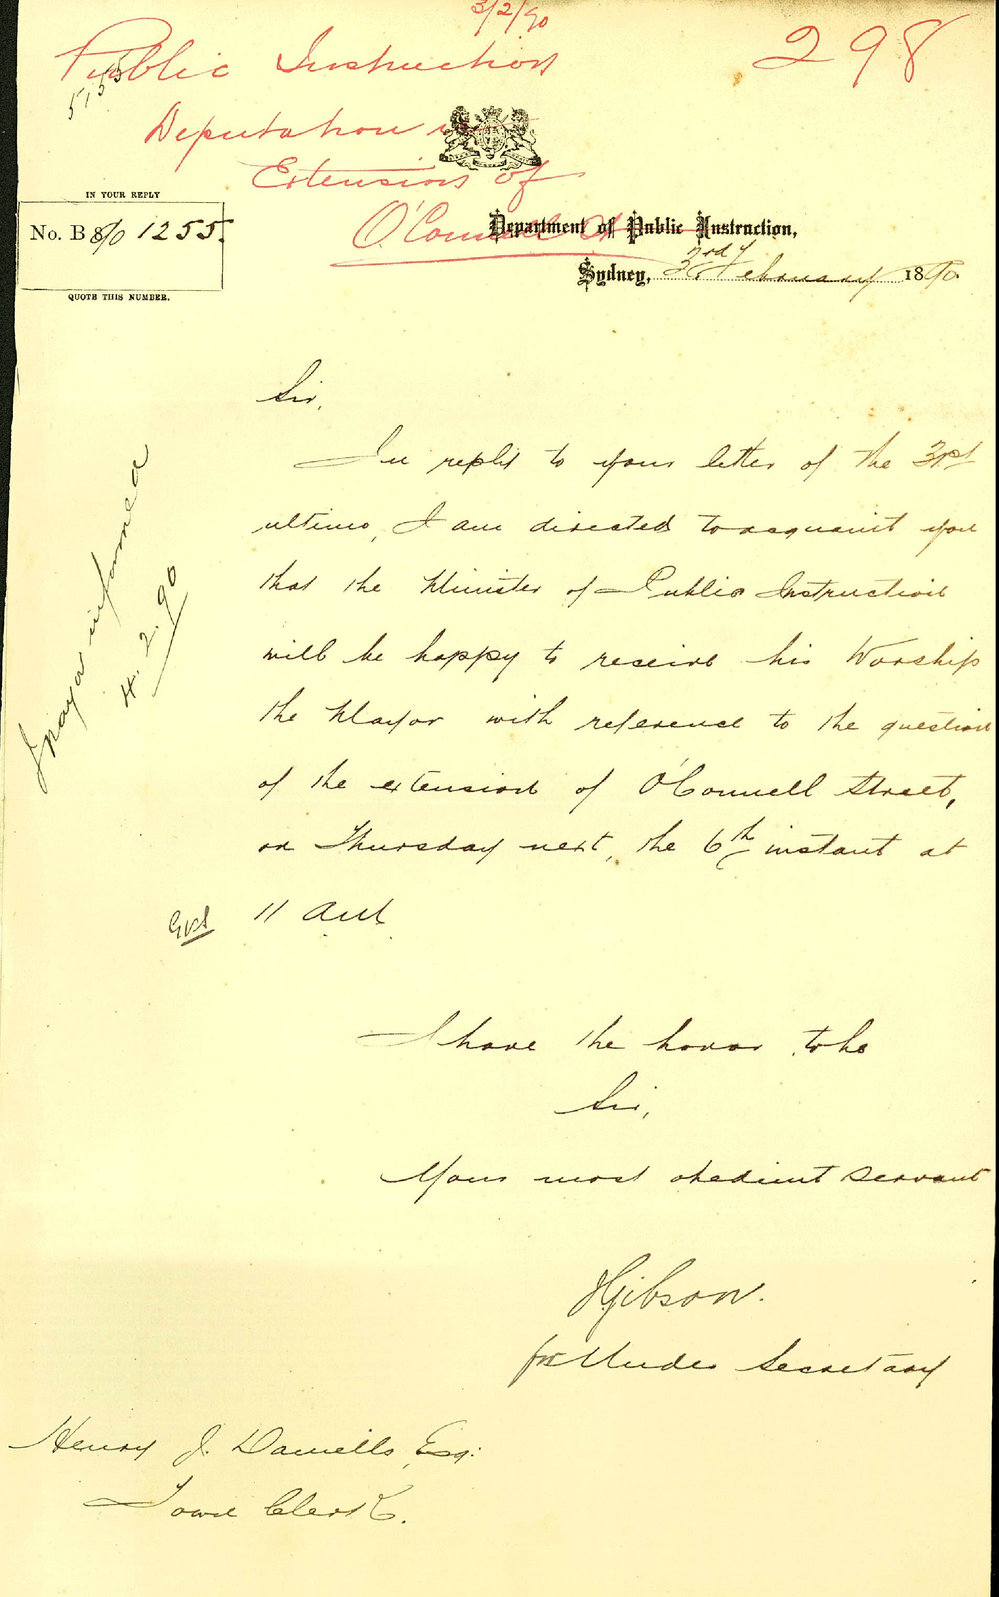 3/2/90
298
Public Instruction
5155
Deputation
Extension of
O'Connell St
IN YOUR REPLY
No. B 90 1255.
QUOTE THIS NUMBER.
Department of Public Instruction,
Sydney, 3rd February 1890.
Sir,
In reply to your letter of the 31st
ultimo, I am directed to acquaint you
that the Minister of Public Instruction
will be happy to receive his Worship
the Mayor with reference to the question
of the extension of O'Connell Street,
on Thursday next, the 6th instant at
11 am
Mayor informed
4.2.90
I have the honor to be
Sir,
Your most obedient servant
JGibson.
for Under Secretary
Henry J. Daniells, Esq:
Town Clerk.